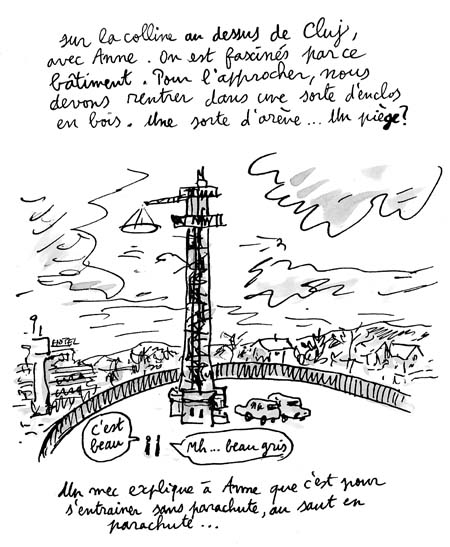 sur la colline au dessus de Cluj,
avec Anne. On est fascinés par ce
bâtiment. Pour l'approcher, nous
devons rentrer dans une sorte d'enclos
en bois. Une sorte d'arène... Un piège?
HOTEL
c'est
beau
Mh... beau gris
Un mec explique à Anne que c'est pour
s'entrainer sans parachute, au saut en
parachute...